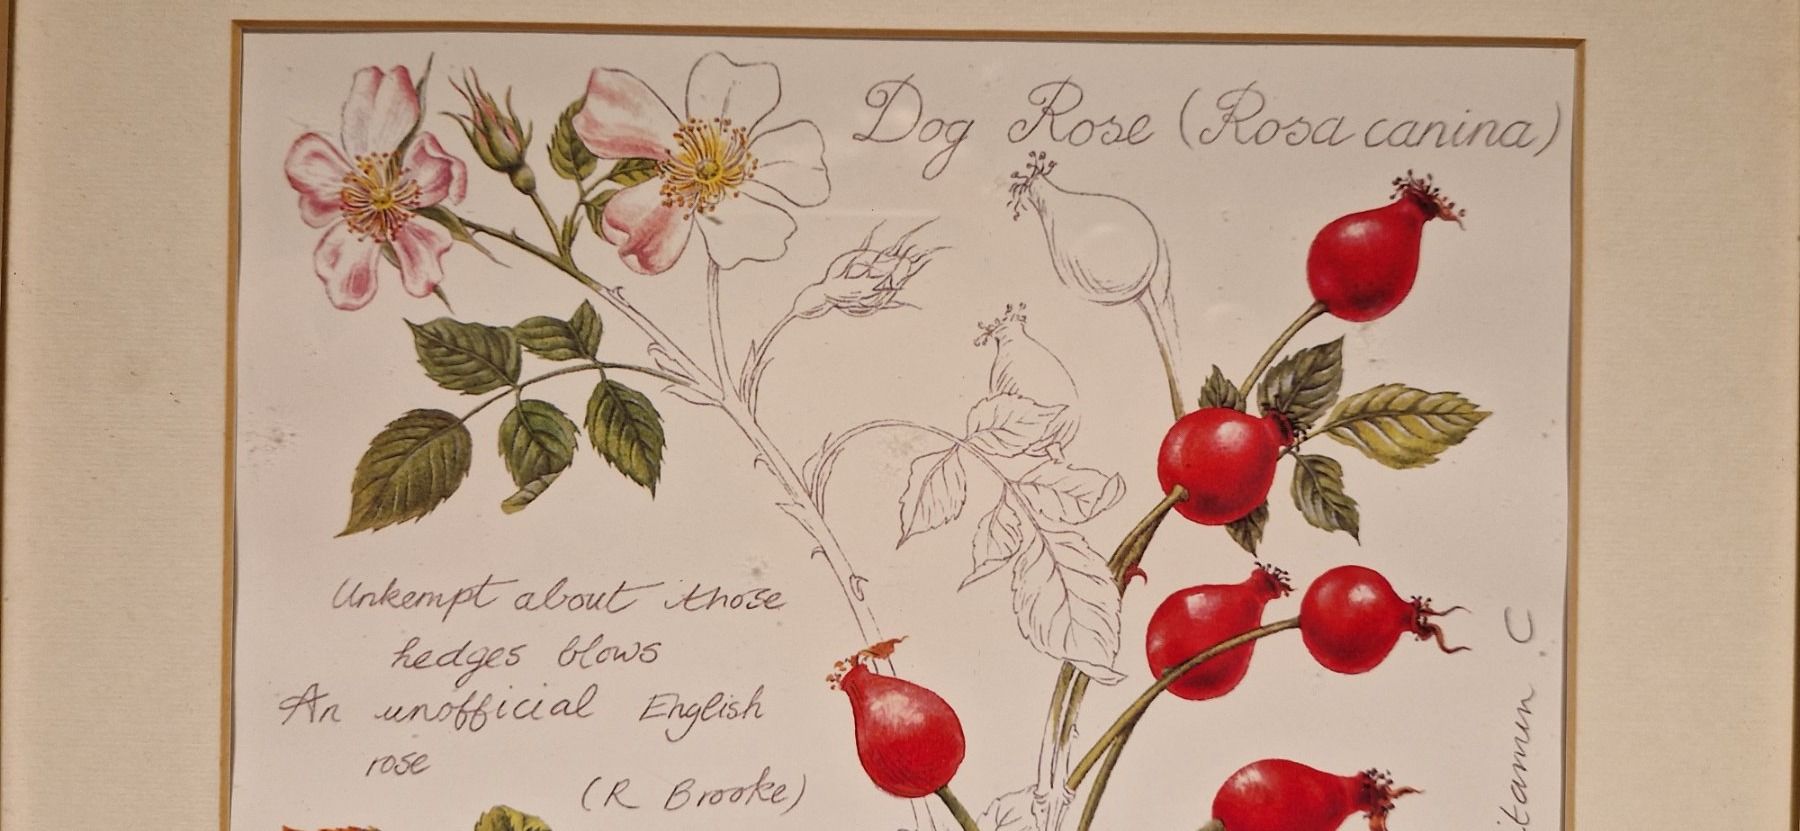 Dog Rose (Rosa canina)
Unkempt about those
hedges blows
An unofficial English
rose
(R Brooke)
C